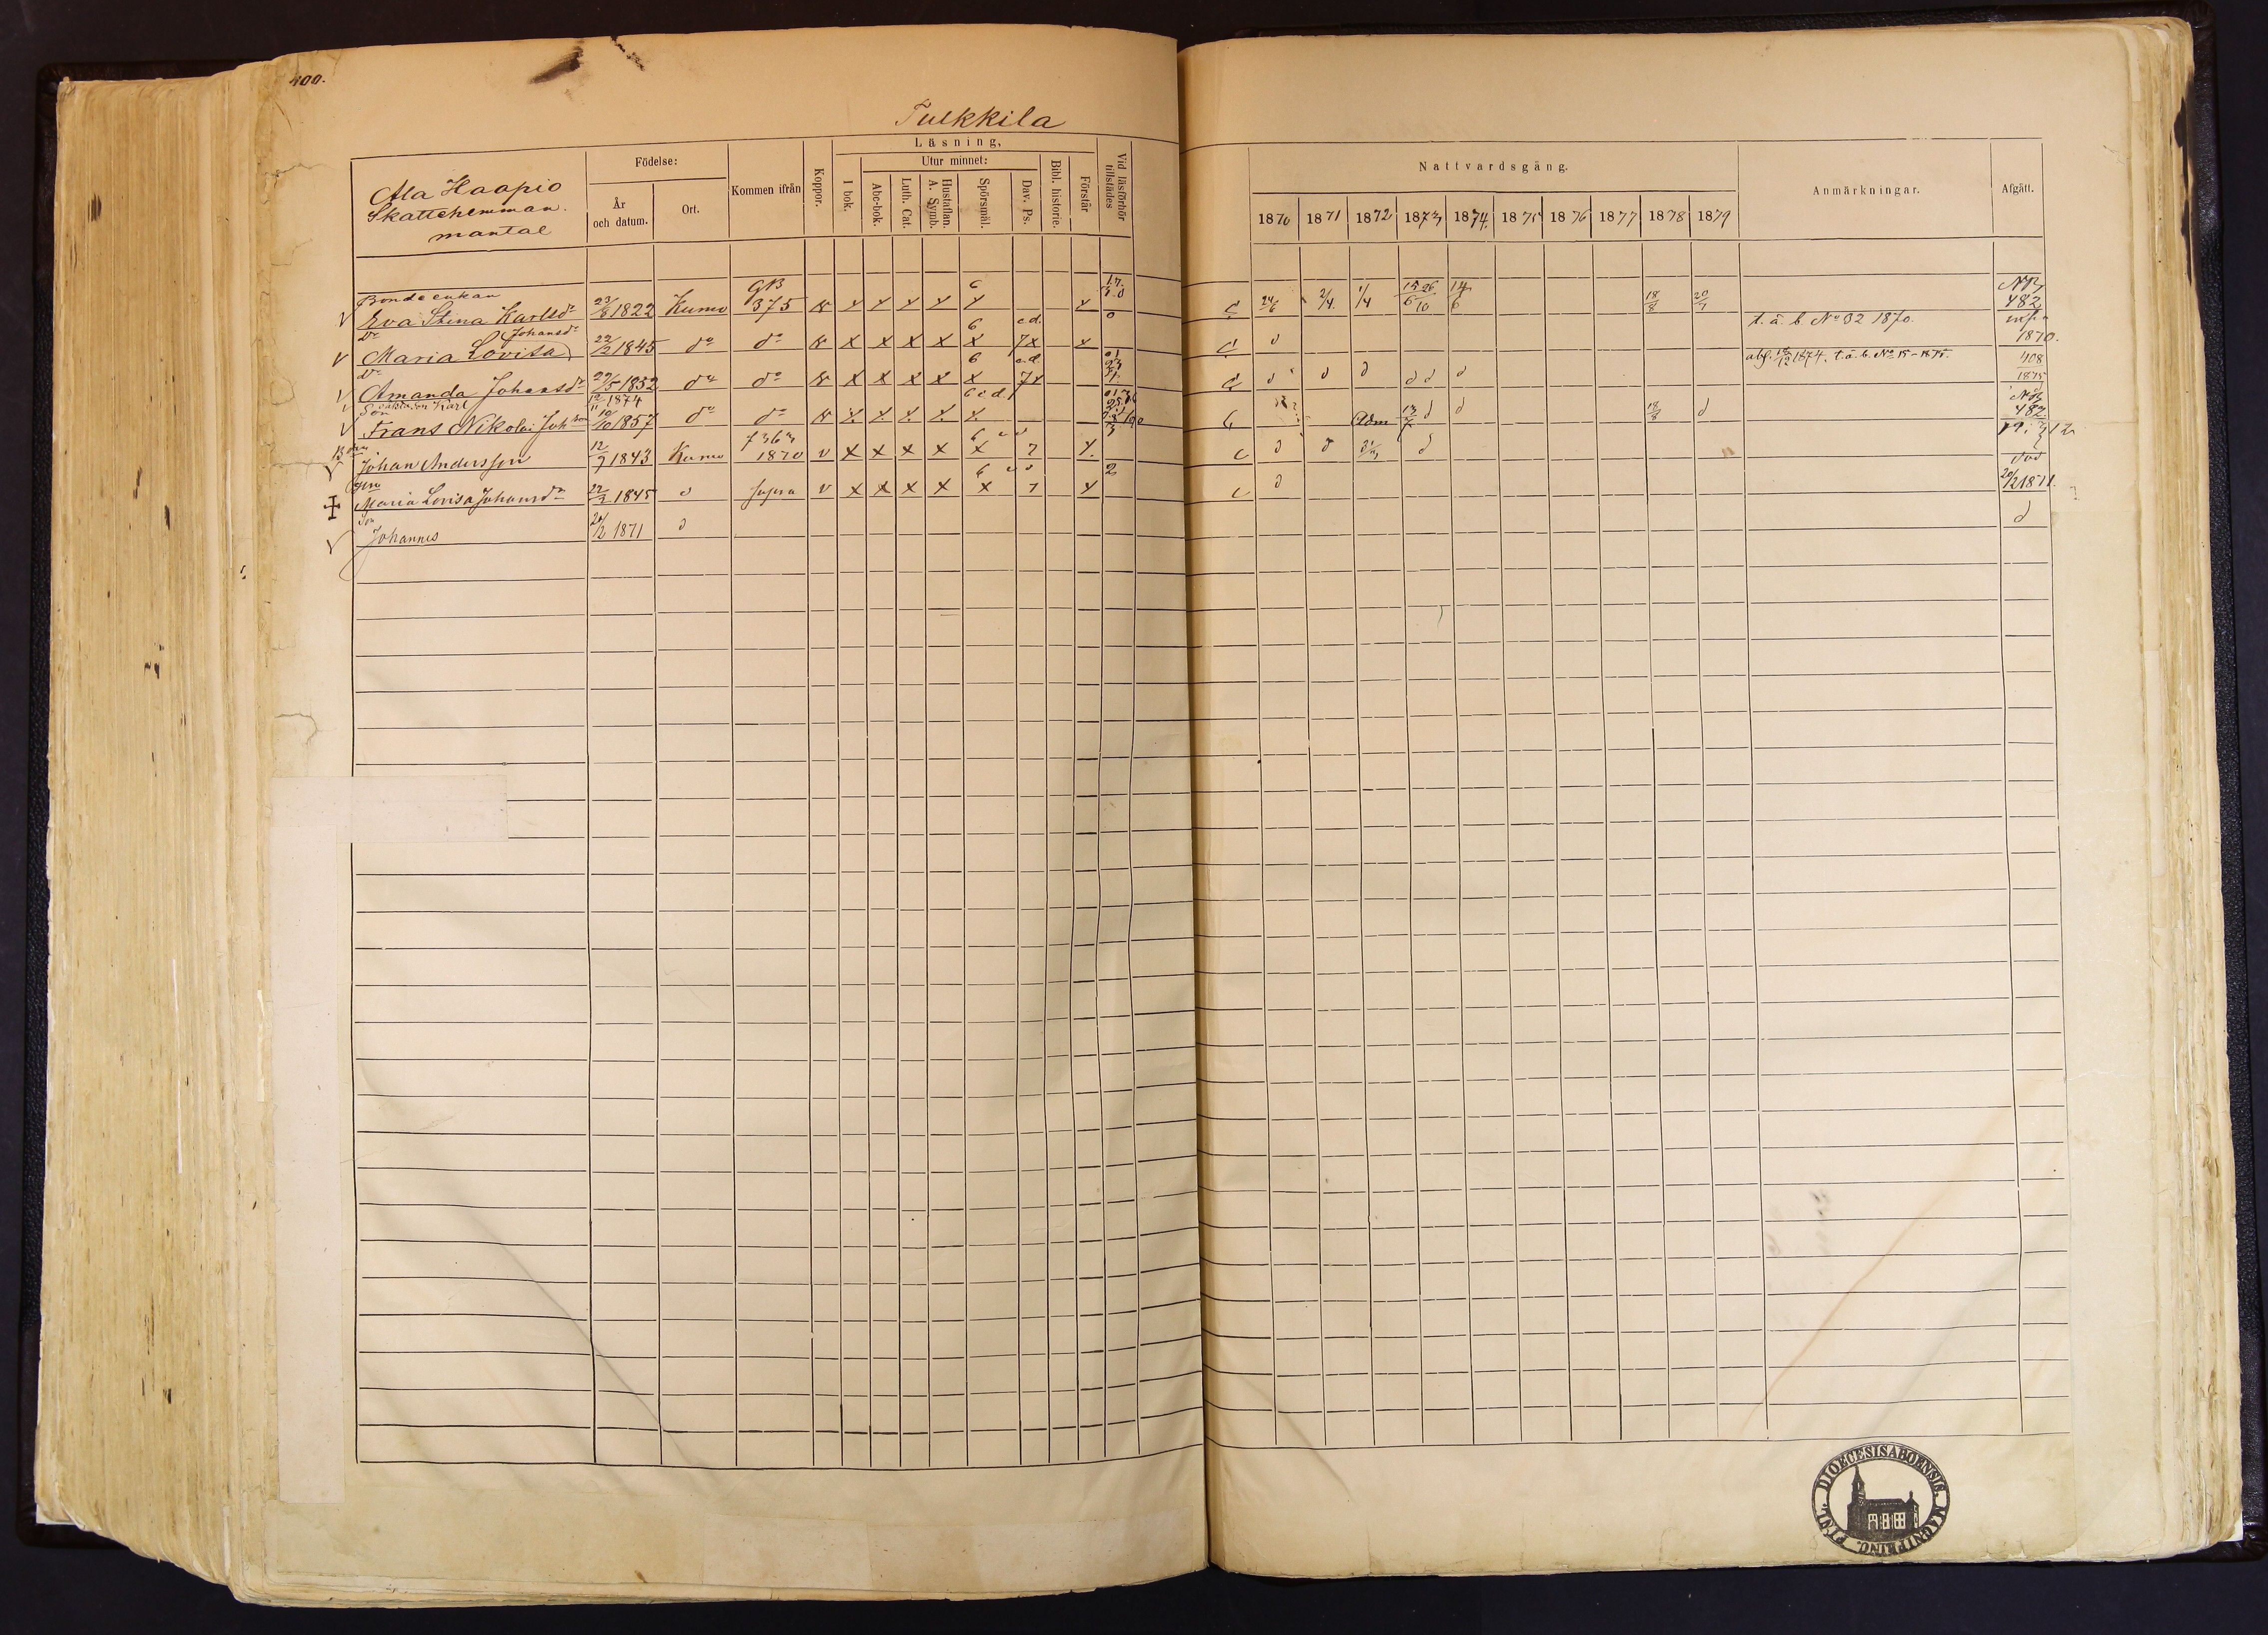 400.
Tulkkila
Ala Haapio
Skattehemman.
mantal
Födelse:
År
och datum.
Ort.
Kommen ifrån
Koppor.
Läsning,
I bok.
Utur minnet:
Abc-bok.
Luth. Cat.
Hustaflan.
A. Symb.
Spörsmål.
Dav. Ps.
Bibl. historie.
Förstår
Vid läsförhör
tillstädes
Nattvardsgång.
1870 1871 1872 1873 1874. 1875 1876 1877 1878 1879
Anmärkningar.
Afgått.
Bondeenkan GB 6 17.
Eva Stina Karlsdr 23/8 1822 Kumo 375 x x x x x x 24/6 2/4. 1/4 15/6 26/10 14/6 18/8 20/7 482
Dr Johansdr 6 c.d. 0 t. ä. b. No 32 1870.
Maria Lovisa 22/2 1845 do do x x x x x 7x x d 1870.
dr 6 c.d. afg. 1874. t. ä. b. No 15-1875. 408
Amanda Johansdr 29/5 1852 do do x x x x x 7x d d d d d d 1875
Son Karl 12/11 1874 6 c d
Frans Nikolai Johsson 10/10 1857 do do x x x x x Adm 13/7 d d 18/8 d 482
Johan Andersson 12/9 1843 Kumo 1870 v x x x x x 7 x d d d
död
Maria Lovisa Johansdr 22/2 1845 d supra v x x x x x 7 x d 20/12 1871.
Son
Johannes 20/12 1871 d d
DIOECESIS ABOENSIS. MAGNI PRINC. FINL.